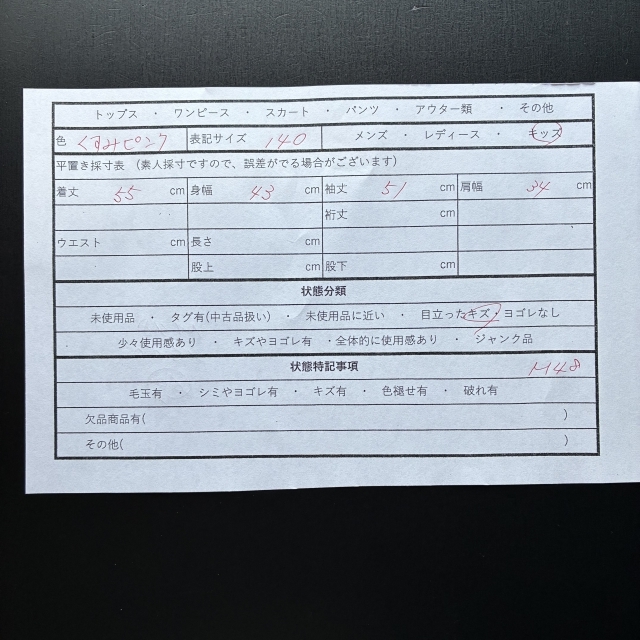 トップス ・ ワンピース ・ スカート ・ パンツ ・ アウター類 ・ その他
色 くすみピンク 表記サイズ 140 メンズ ・ レディース ・ キッズ
平置き採寸表 （素人採寸ですので、誤差がでる場合がございます）
着丈 55 cm 身幅 43 cm 袖丈 51 cm 肩幅 34 cm
裄丈 cm
ウエスト cm 長さ cm
股上 cm 股下 cm
状態分類
未使用品 ・ タグ有(中古品扱い) ・ 未使用品に近い ・ 目立ったキズ・ヨゴレなし
少々使用感あり ・ キズやヨゴレ有 ・全体的に使用感あり ・ ジャンク品
状態特記事項 M48
毛玉有 ・ シミやヨゴレ有 ・ キズ有 ・ 色褪せ有 ・ 破れ有
欠品商品有( )
その他( )